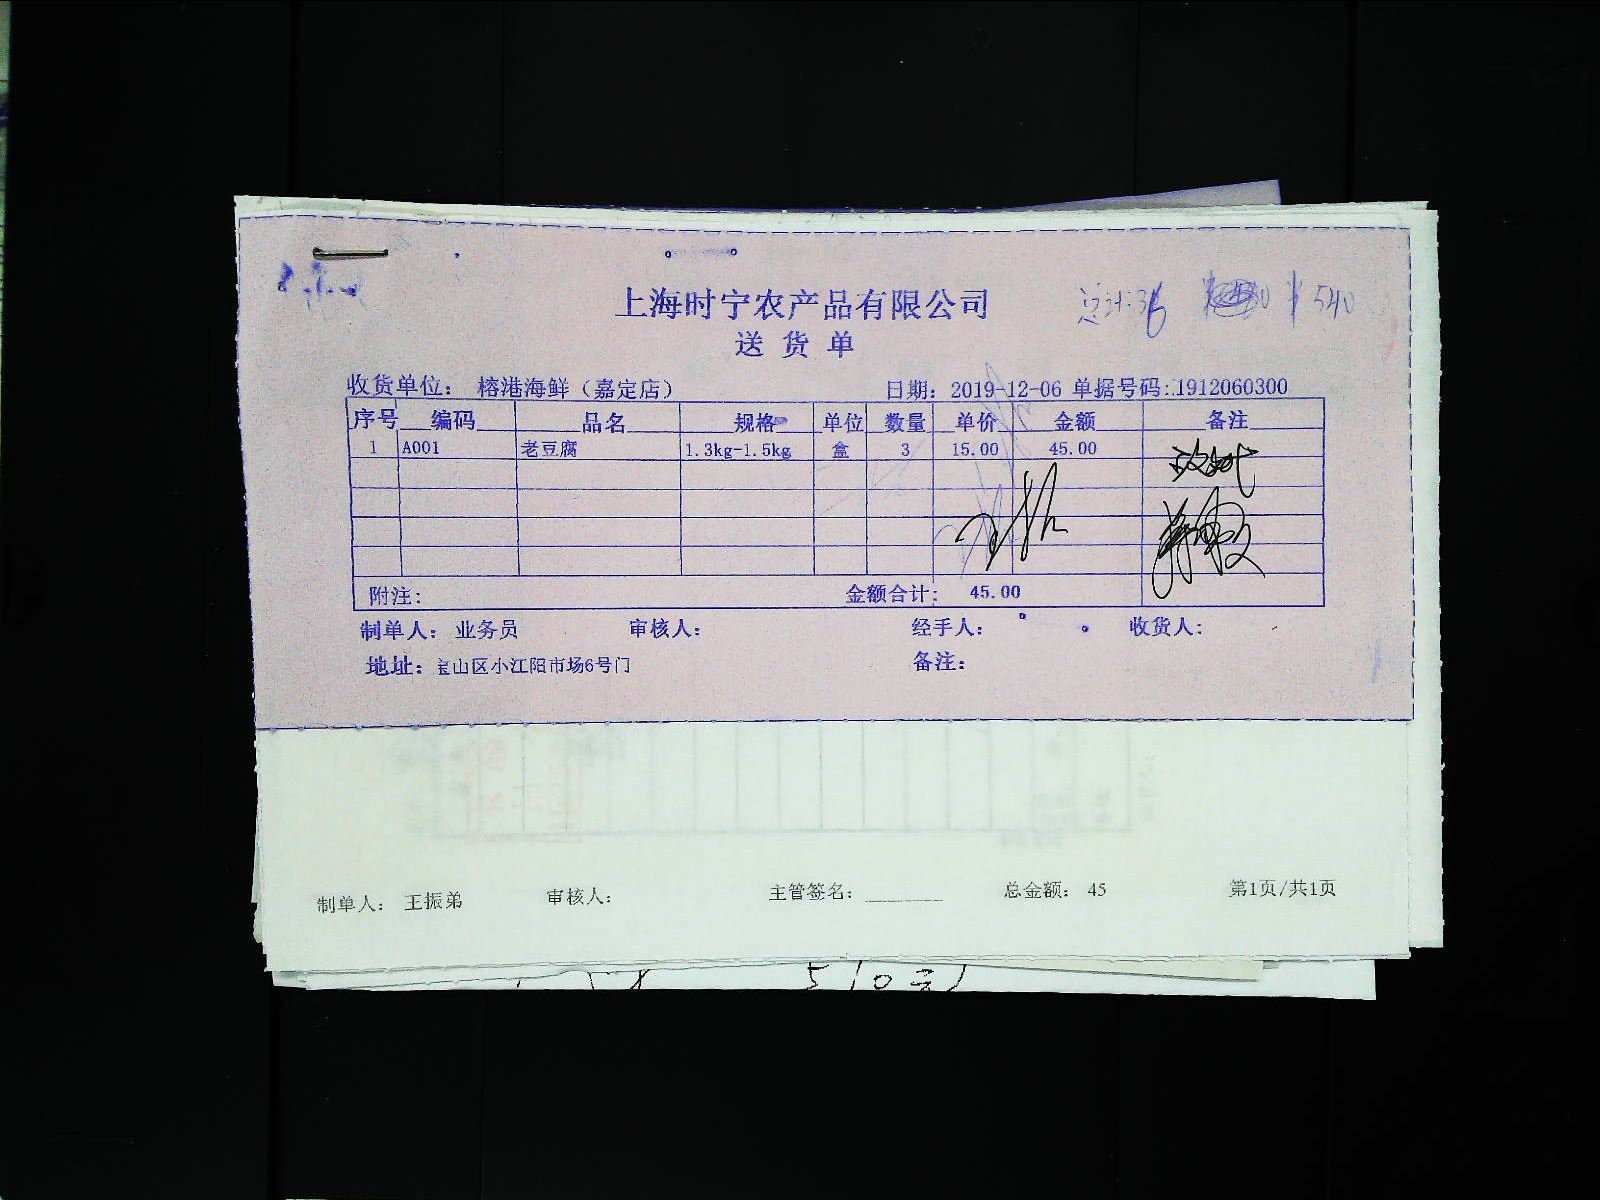 上海时宁农产品有限公司
总计:36 ¥540
送货单
收货单位： 榕港海鲜（嘉定店） 日期： 2019-12-06 单据号码：1912060300
序号 编码 品名 规格 单位 数量 单价 金额 备注
1 A001 老豆腐 1.3kg-1.5kg 盒 3 15.00 45.00
附注： 金额合计： 45.00
制单人： 业务员 审核人： 经手人： 收货人：
地址：宝山区小江阳市场6号门 备注：
制单人： 王振弟 审核人： 主管签名： 总金额： 45 第1页/共1页